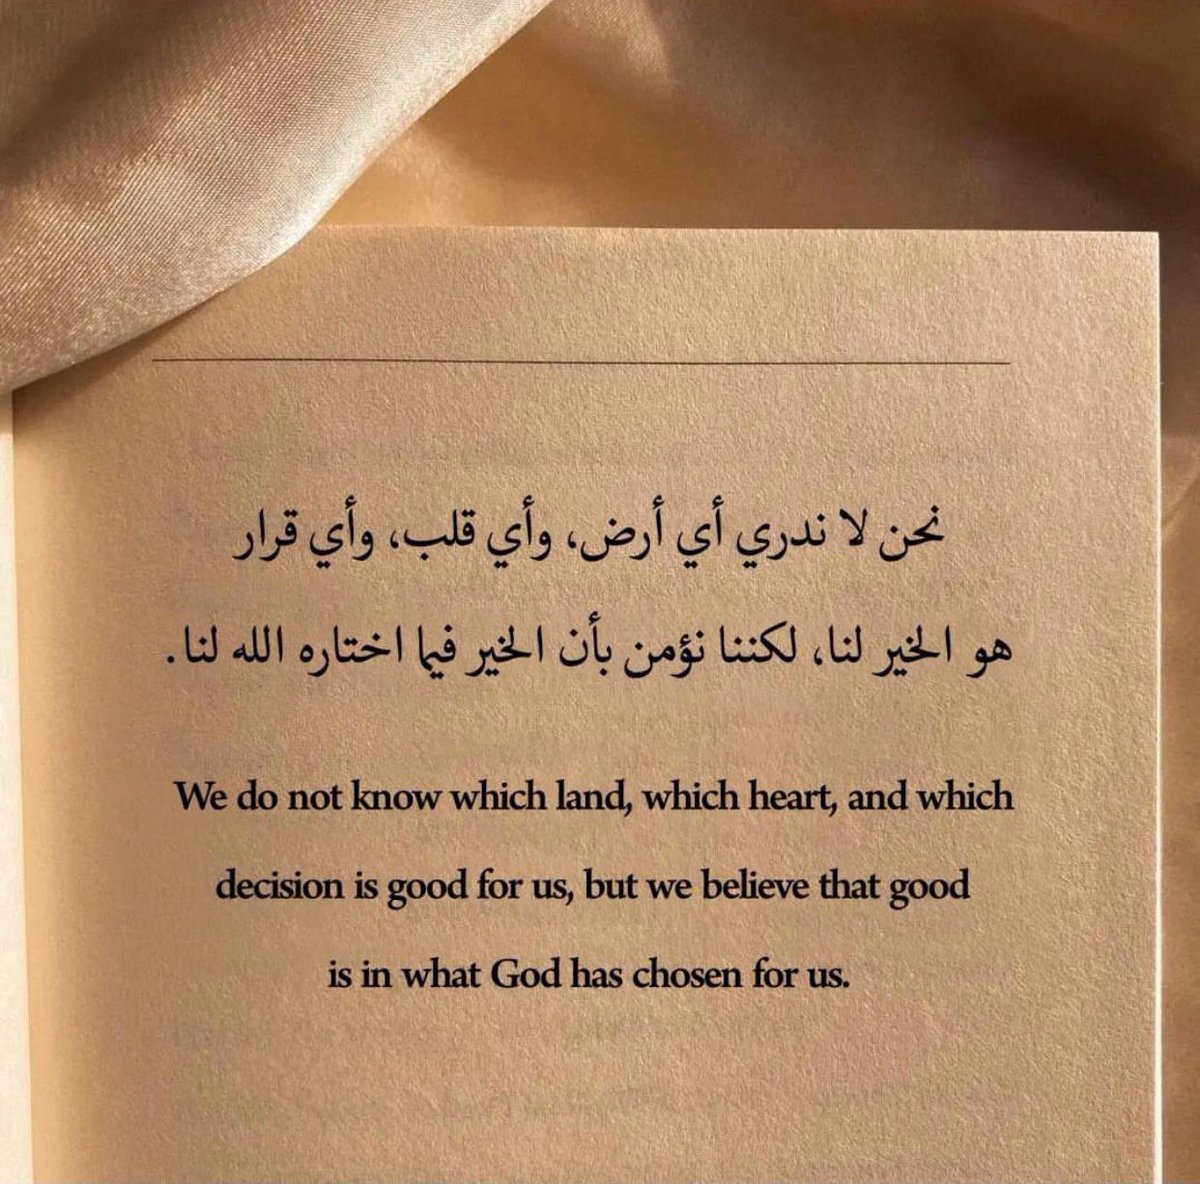 نحن لا ندري أي أرض، وأي قلب، وأي قرار
هو الخير لنا، لكننا نؤمن بأن الخير فيما اختاره الله لنا.
We do not know which land, which heart, and which
decision is good for us, but we believe that good
is in what God has chosen for us.